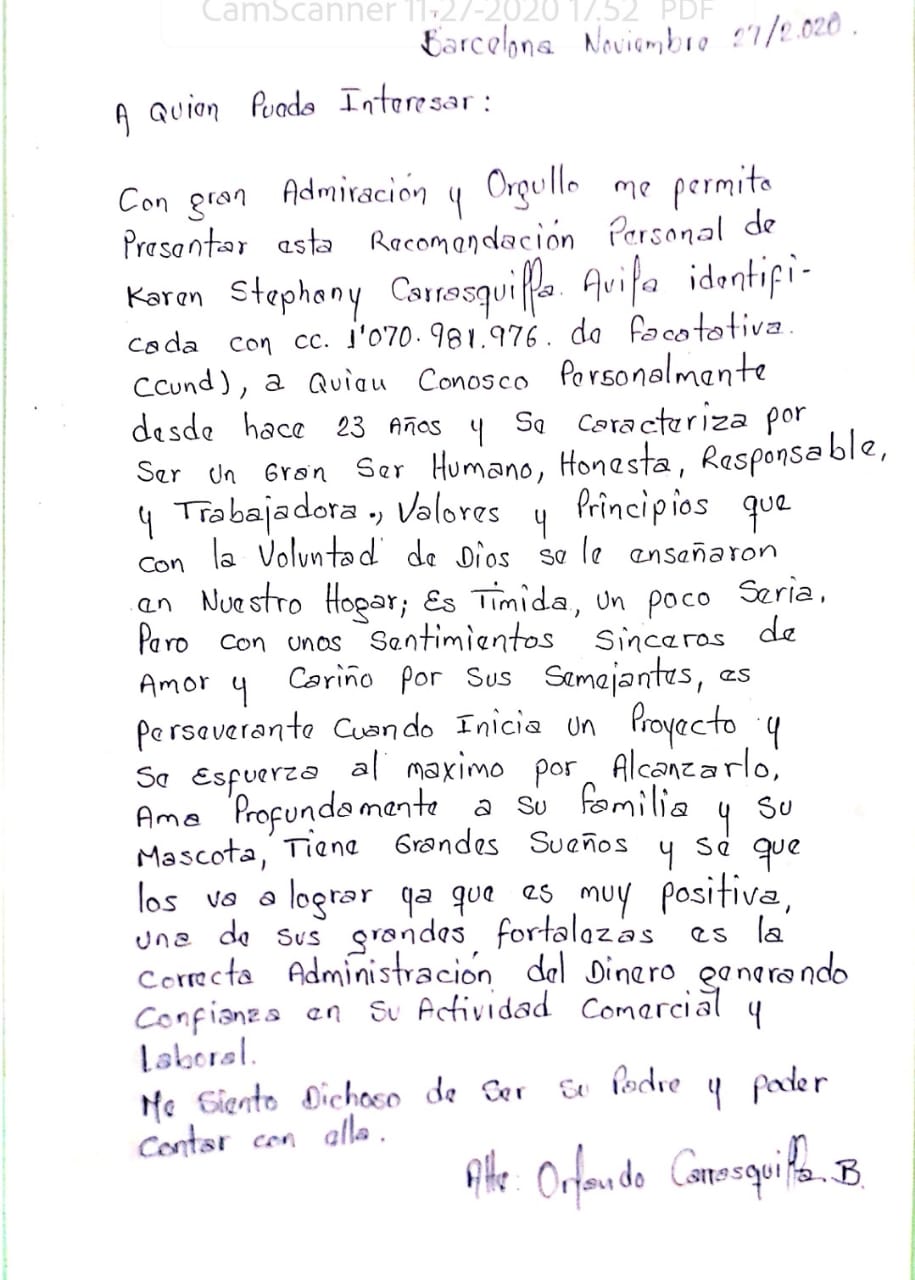 CamScanner 11-27-2020 17.52 PDF
Barcelona Noviembre 27/2.020.
A Quien Pueda Interesar:
Con gran Admiración y Orgullo me permito
Presentar esta Recomendación Personal de
Karen Stephany Carrasquilla. Avila identifi-
cada con cc. 1'070.981.976. de facatativa.
Ccund), a Quien Conosco Personalmente
desde hace 23 Años y Se Caracteriza por
Ser Un Gran Ser Humano, Honesta, Responsable,
y Trabajadora., Valores y Principios que
con la Voluntad de Dios se le enseñaron
en Nuestro Hogar; Es Timida, un poco Seria.
Pero con unos Sentimientos Sinceros de
Amor y Cariño por Sus Semejantes, es
Perseverante Cuando Inicia un Proyecto y
Se Esfuerza al maximo por Alcanzarlo,
Ama Profundamente a su familia y su
Mascota, Tiene Grandes Sueños y se que
los va a lograr ya que es muy positiva,
una de sus grandes fortalezas es la
Correcta Administración del Dinero generando
Confianza en Su Actividad Comercial y
Laboral.
Me Siento Dichoso de Ser su Padre y poder
Contar con ella.
Atte: Orlando Carrasquilla. B.